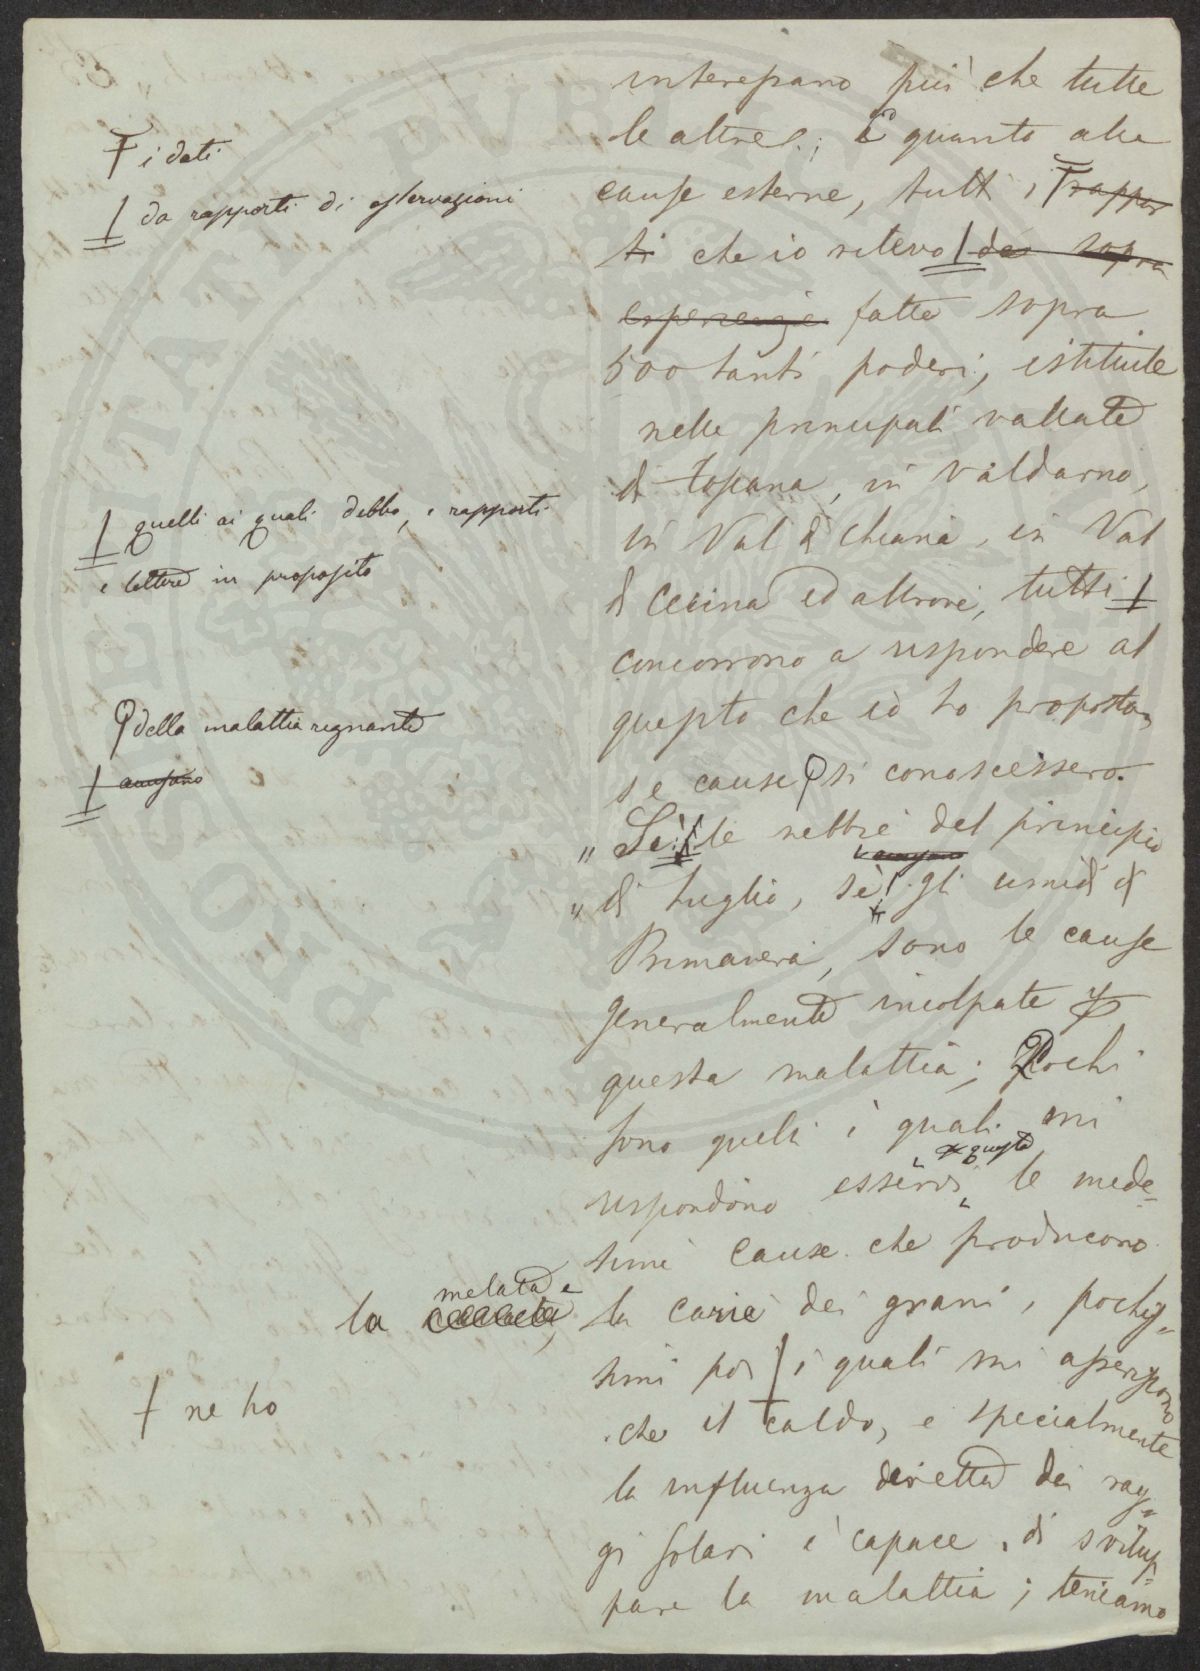 interessano più che tutte
le altre; è quanto alle
cause esterne, tutti i rappor
ti che io rilevo da sopra
esperienze fatte sopra
500 tanti poderi, istituite
nelle principali vallate
di Toscana, in Valdarno,
in Val di Chiana, in Val
di Cecina ed altrove, tutti
concorrono a rispondere al
quesito che io ho proposto
se cause si conoscessero.
„ Sè le nebbie del principio
accusano
„ di Luglio, sè gli umidi di
Primavera, sono le cause
generalmente incolpate
questa malattia; Pochi
sono quelli i quali mi
queste
rispondino esservi le mede=
sime cause che producono
la carie dei grani, pochis=
simi poi i quali mi asseriscono
che il caldo, e specialmente
la influenza diretta dei rag=
gi solari è capace di svilup=
pare la malattia; teniamo
i dati
da rapporti di osservazioni
quelli ai quali debbo, e rapporti
e lettere in proposito
della malattia regnante
accusano
melata e
la
ne ho
PROPRIETATI PUBLICAE